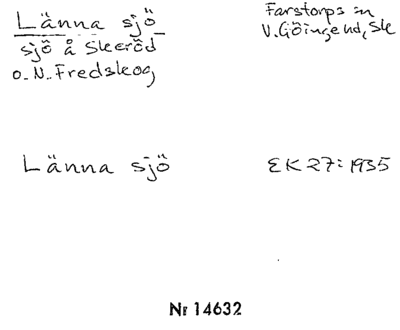 Länna sjö
Farstorps sn
V. Göinge hd, Sk
sjö å Skeröd
o. N. Fredskog
Länna sjö
EK 27:1935
Nr 14632